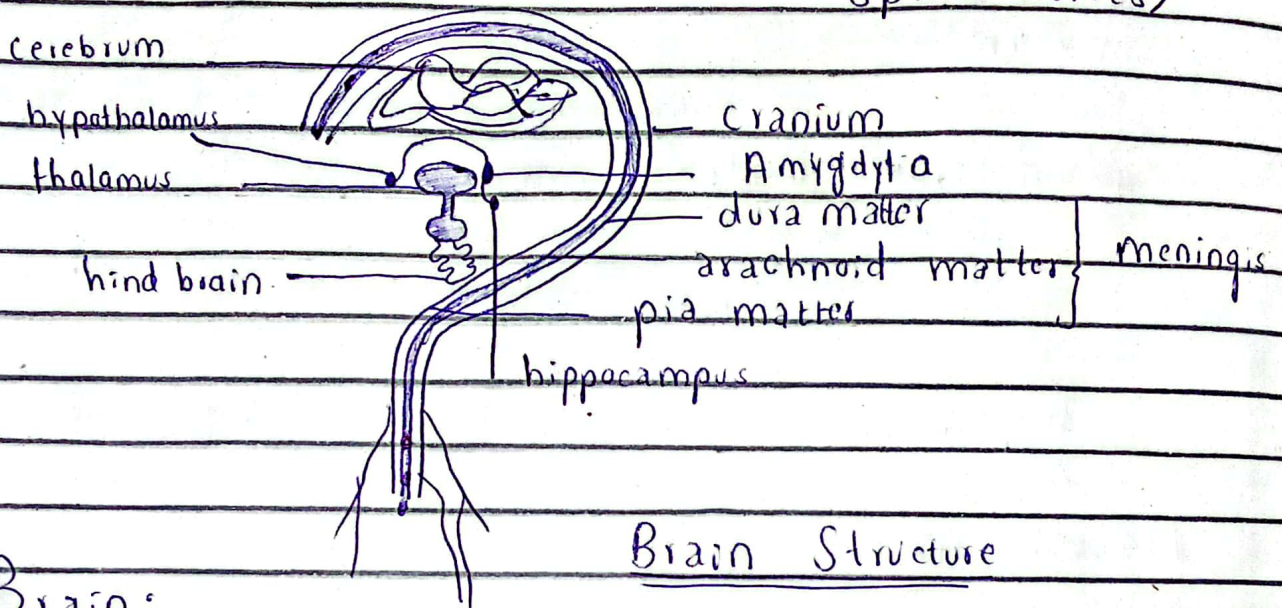 cerebrum
hypothalamus
thalamus
hind brain
cranium
Amygdyla
dura matter
arachnoid matter
pia matter
meningis
hippocampus
Brain Structure
Brain: